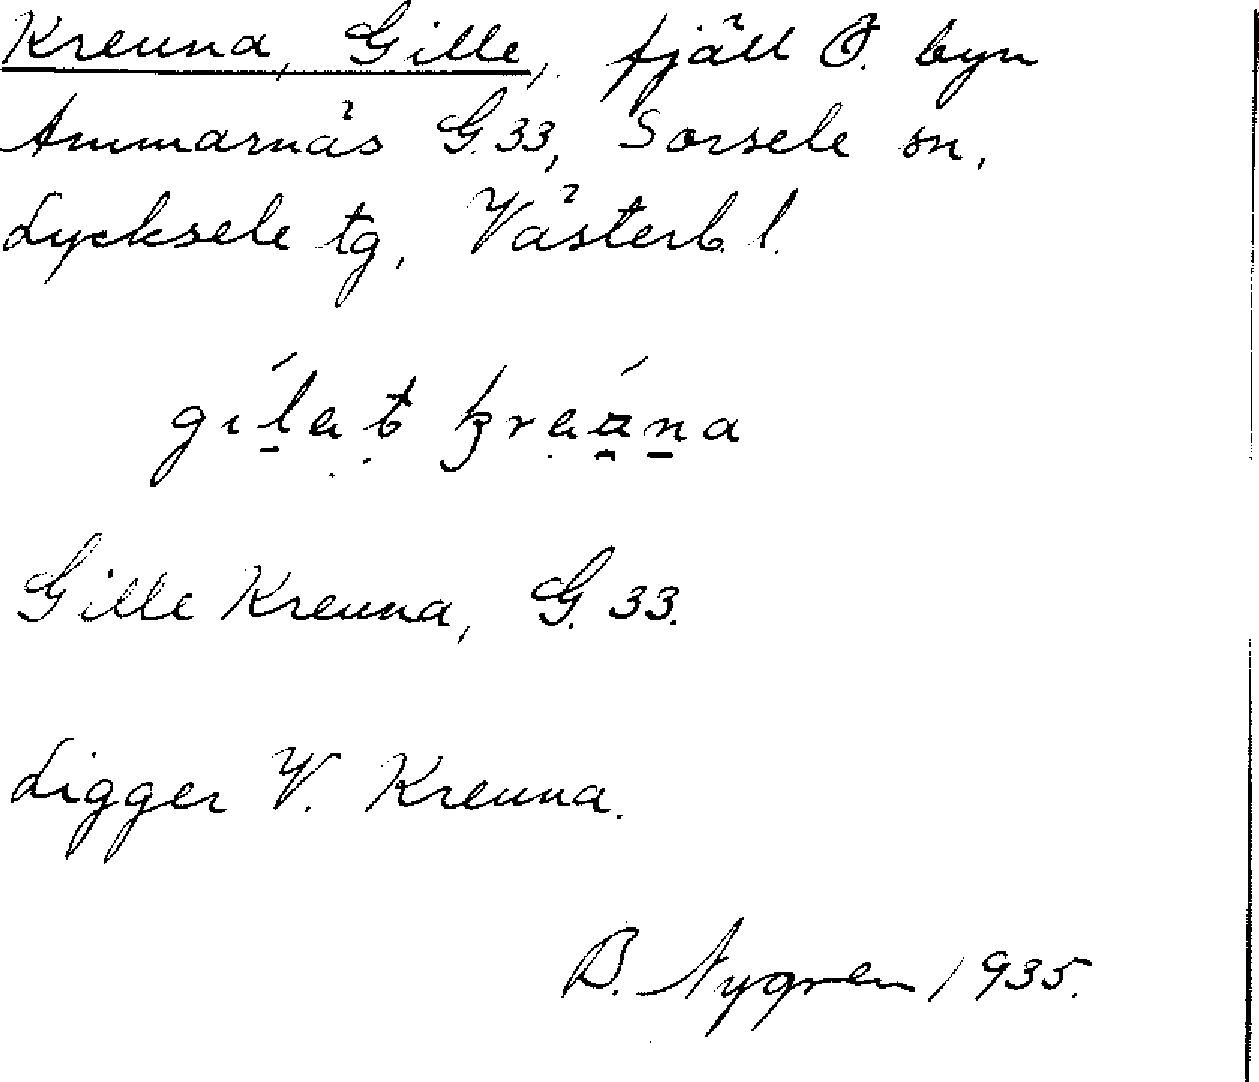 Kreuna, Gille, fjäll Ö. byn
Ammarnäs G.33, Sorsele sn,
Lycksele tg, Västerb. l.
Gille Kreuna, G. 33.
Ligger V. Kreuna.
B. Nygren 1935.